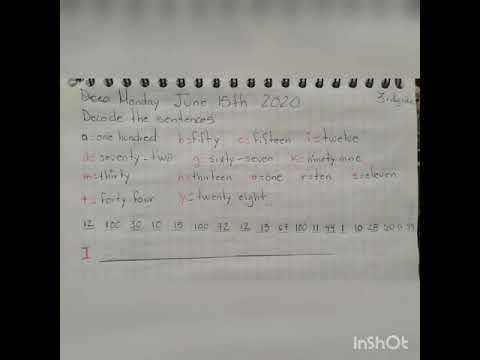 Monday June 15th 2020 3rd grade
Decode the sentences
a=one hundred b=fifty e=fifteen i=twelve
d=seventy-two g=sixty-seven k=ninety-nine
m=thirty n=thirteen o=one r=ten s=eleven
t=forty four y=twenty eight
12 100 30 10 15 100 72 12 13 67 100 11 44 1 10 28 50
I
InShOt